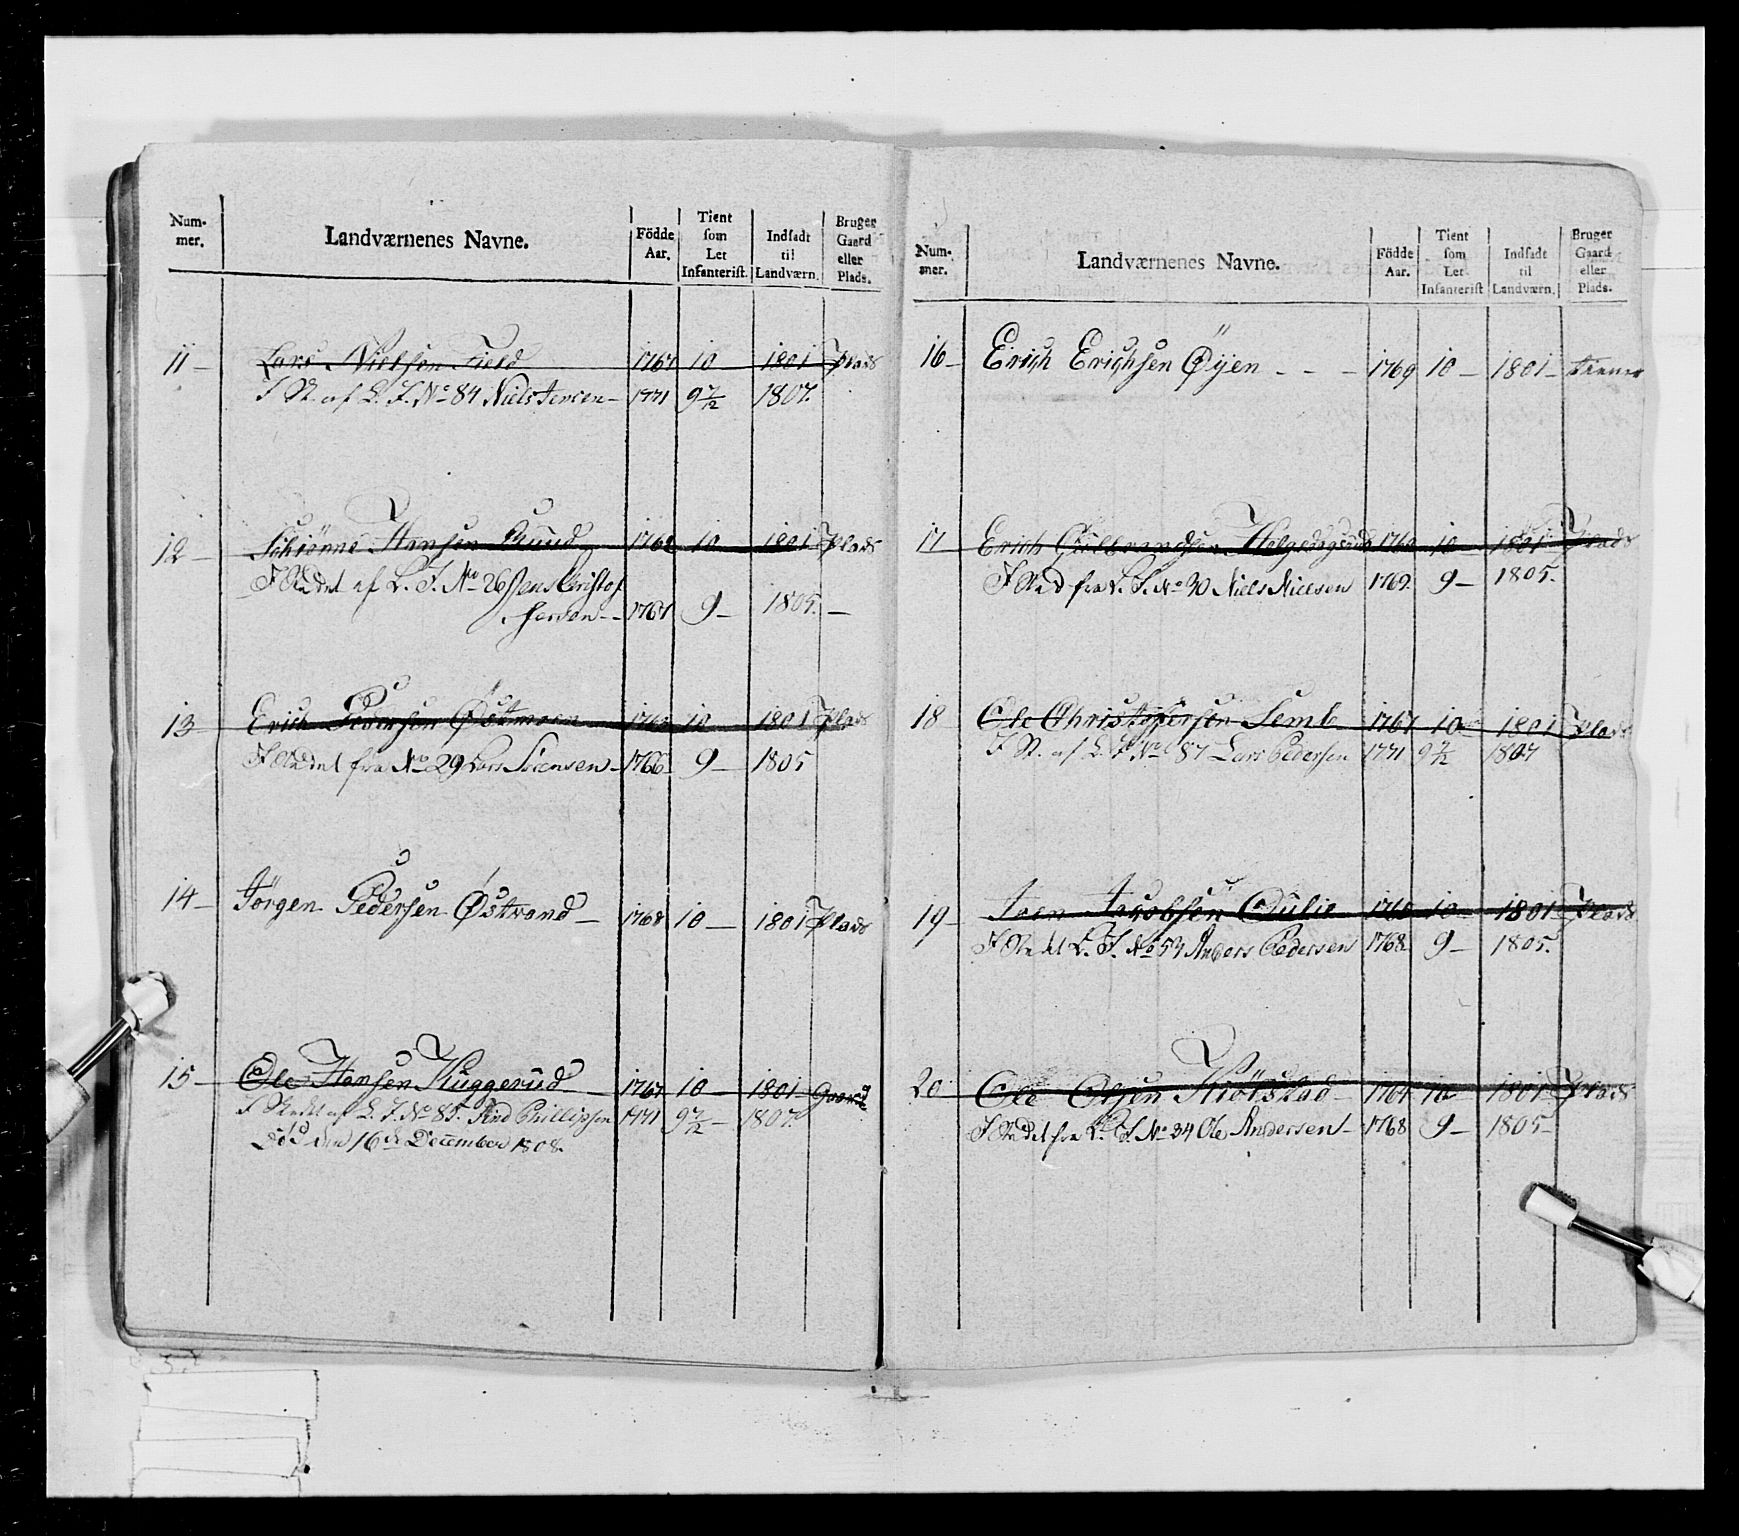 Num-mer. Landværnenes Navne. Födde Aar. Tient som Let Infanterist. Indsadt til Landværn. Bruger Gaard eller Plads.
11 – Lars Nielsen Field 1767 10 1801 Plads
I St. af L. I. No 84 Niels Jensen – 1771 9 7/12 1807.
12 – Hansen Ruud 1768 10 1801 Plads
I Stædet af L. I. No 26 Jens Cristof
fersen – 1767 9 – 1805. –
13 – Erich Pedersen Østmoen 1768 10 1801 Plads
I Stædet fra No 29 Lars Svensen – 1766 9 – 1805
14 – Jörgen Pedersen Østrand – 1768 10 – 1801 Plads
15 – Ole Hansen Kuggerud 1767 10 – 1801 Gaard
I Stædet af L. I. No 85. Phillipsen 1771 9 7/12 – 1807.
Död den 16de December 1808.
Num-mer. Landværnenes Navne. Födde Aar. Tient som Let Infanterist Indsadt til Landværn. Bruger Gaard eller Plads.
16 – Erich Erichsen Øyen - - - 1769 10 – 1801 – tiener
17 Erich Gulbrandsen 1768 10 – 1801 Plads
I Sted fra L. I. No 30 Niels Nielsen 1769. 9 – 1805.
18 Ole Christophersen Semb 1767 10 1801 Plads
I St. af L. I. No 87 – Lars Pedersen 1771 9 7/12 1807
19 – Jacobsen 1768 10 – 1801 Plads
I Stædet L. I. No 53 Anders Pedersen 1768. 9 – 1805.
20 Ole Olsen 1767 10 1801 Plads
I Stædet fra L. I. No 34 Ole Andersen – 1768 9 – 1805 –